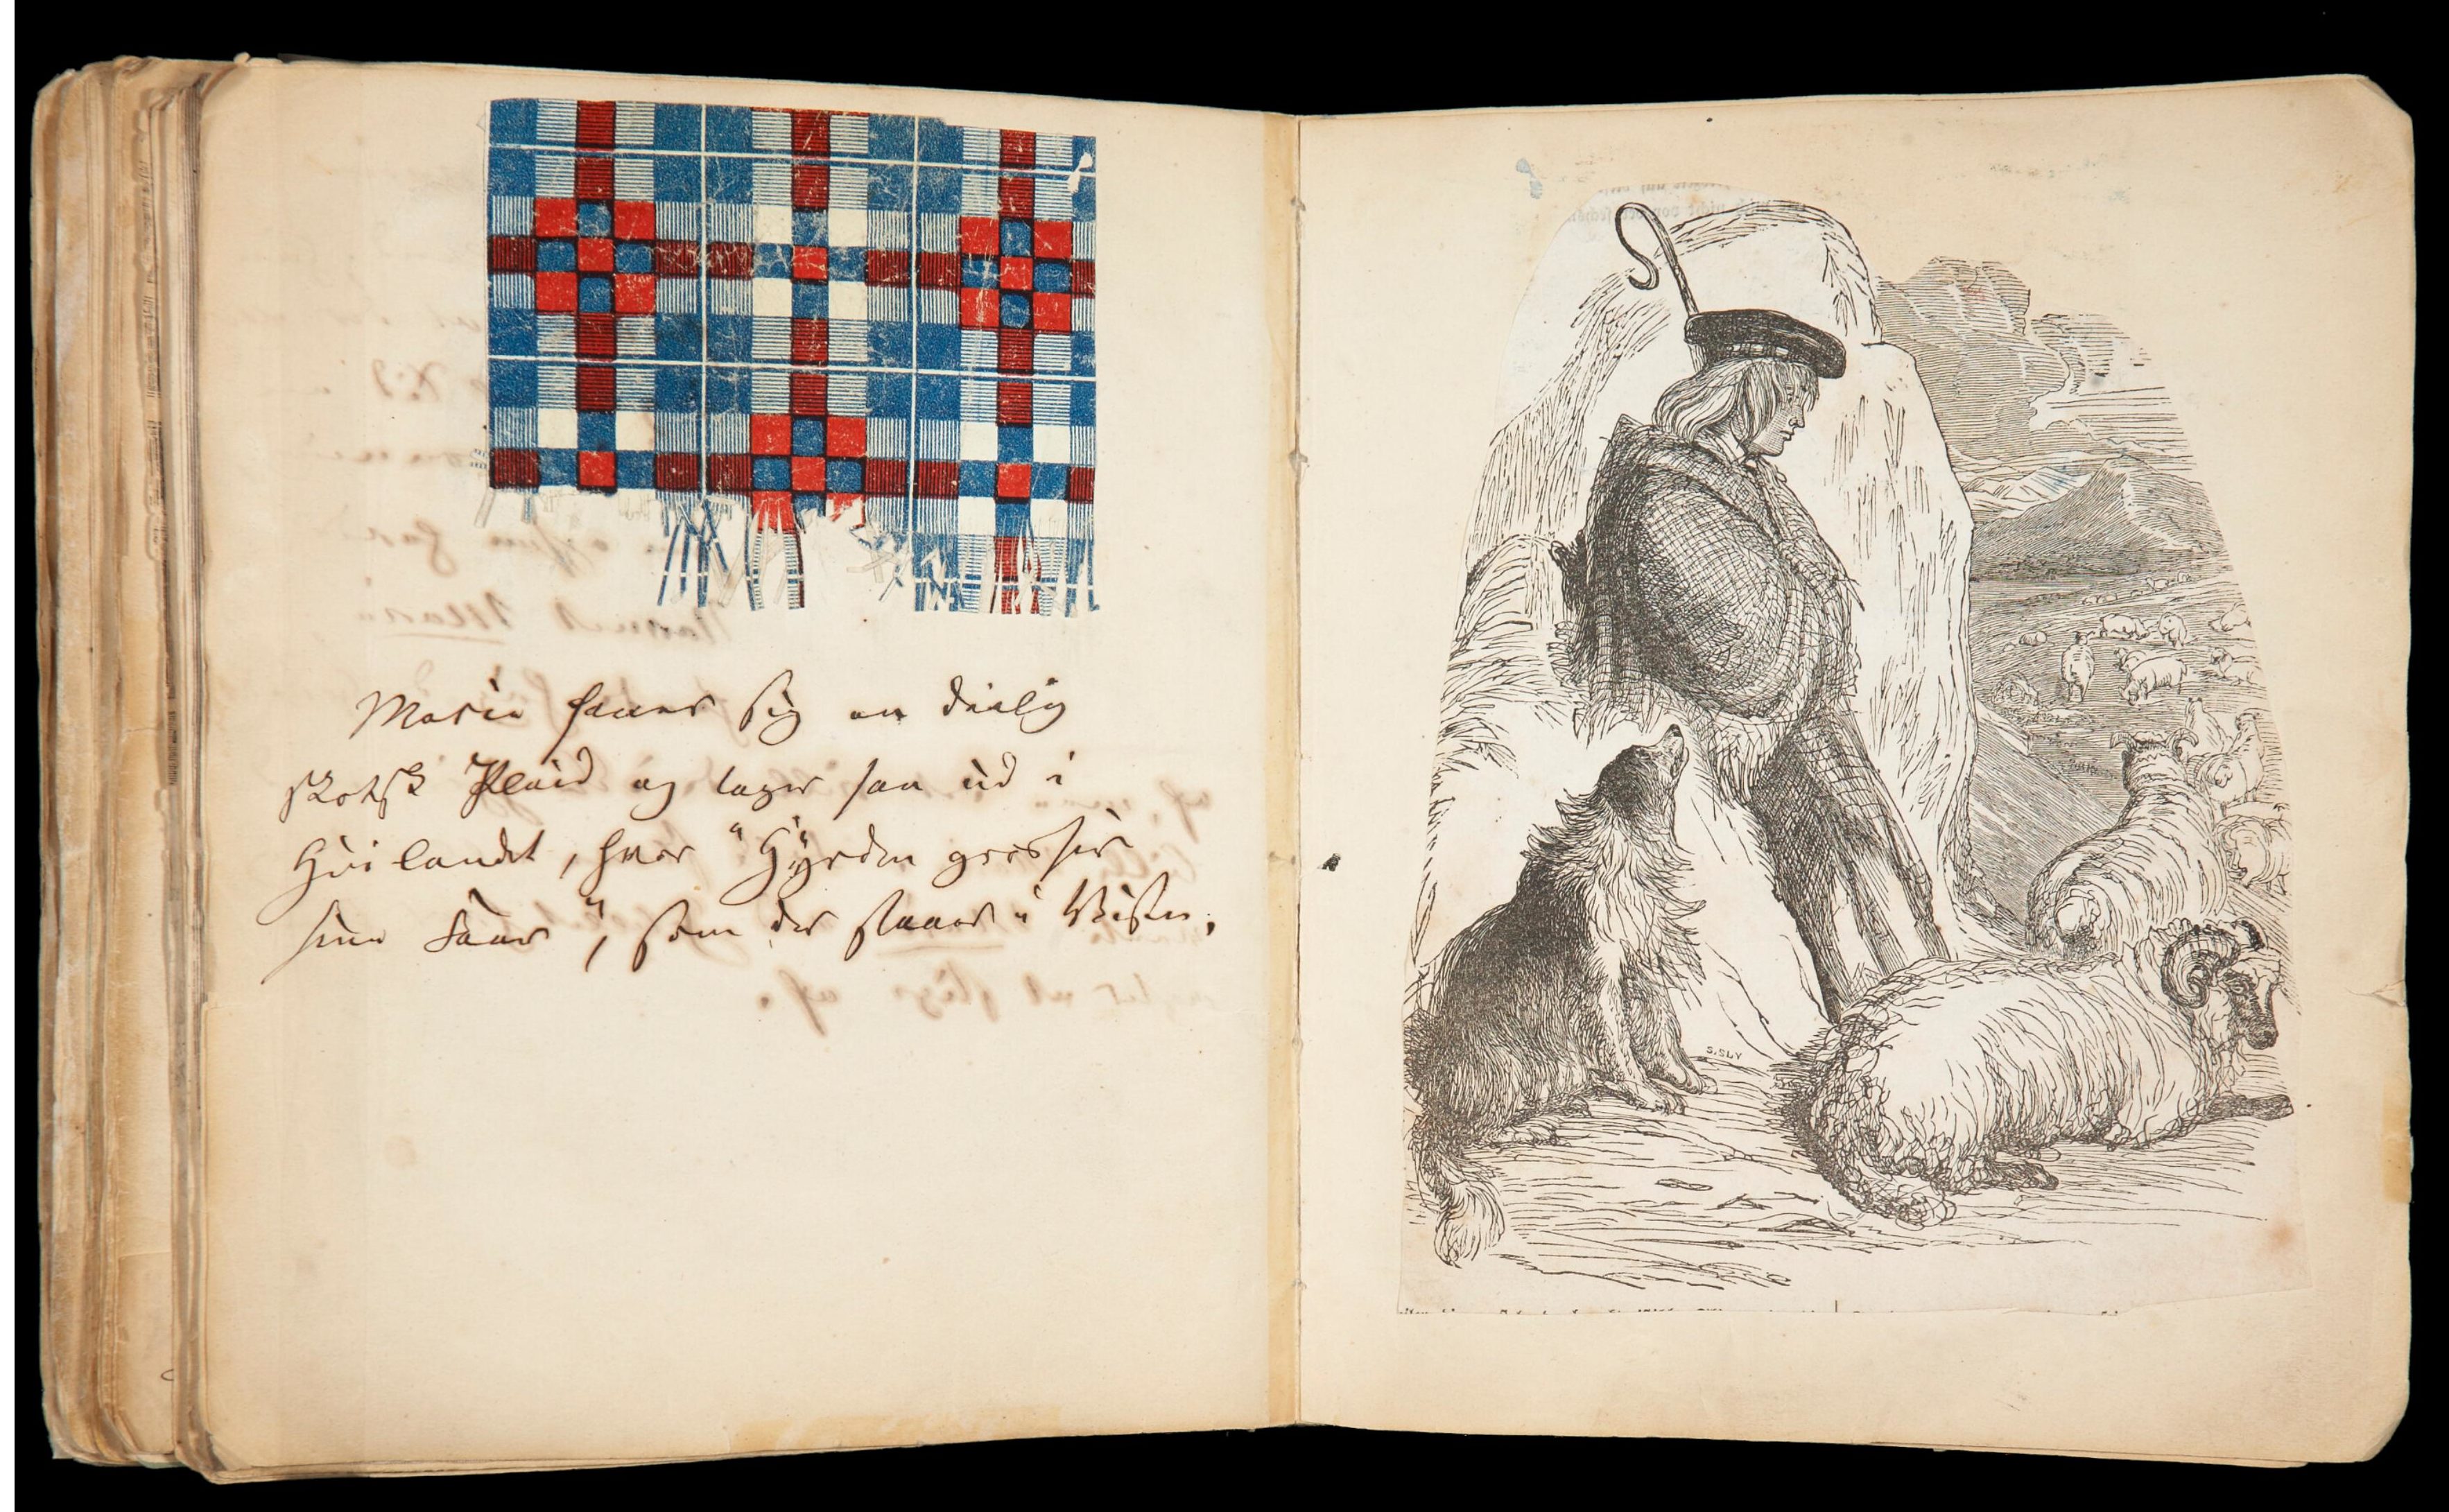 Marie faaer sig en deilig
skotsk Plaid og tager saa ud i
Høilandet, hvor "Hyrden græsser
sine Faar", som der staaer i Visen.
S.SLY